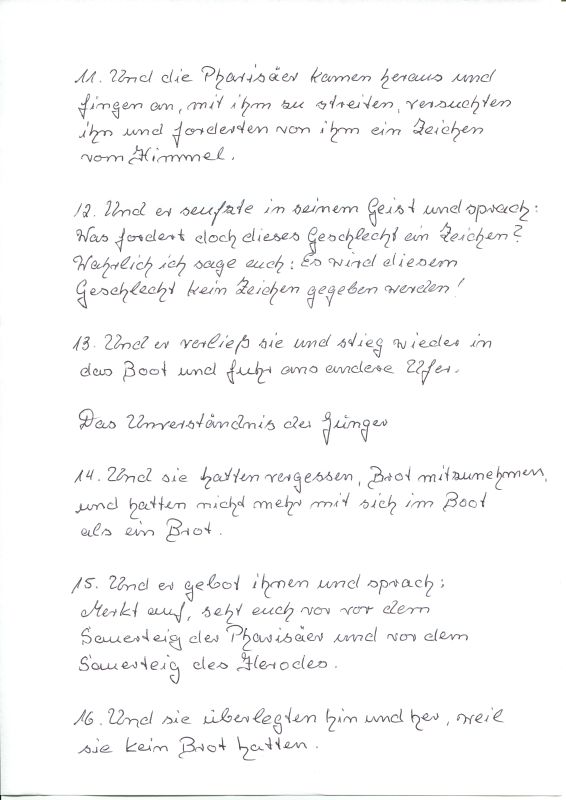 11. Und die Pharisäer kamen heraus und
fingen an, mit ihm zu streiten, versuchten
ihn und forderten von ihm ein Zeichen
vom Himmel.
12. Und er seufzte in seinem Geist und sprach:
Was fordert doch dieses Geschlecht ein Zeichen?
Wahrlich ich sage euch: Es wird diesem
Geschlecht kein Zeichen gegeben werden!
13. Und er verließ sie und stieg wieder in
das Boot und fuhr ans andere Ufer.
Das Unverständnis der Jünger
14. Und sie hatten vergessen, Brot mitzunehmen,
und hatten nicht mehr mit sich im Boot
als ein Brot.
15. Und er gebot ihnen und sprach:
Merkt auf, seht euch vor vor dem
Sauerteig der Pharisäer und vor dem
Sauerteig des Herodes.
16. Und sie überlegten hin und her, weil
sie kein Brot hatten.